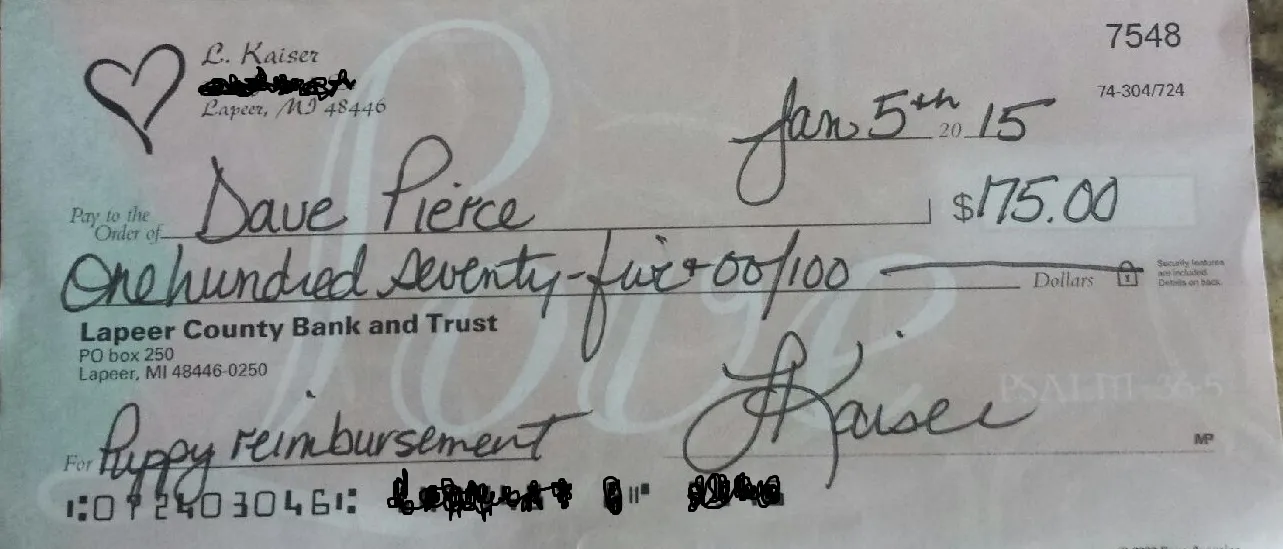 L. Kaiser
7548
Lapeer, MI 48446
74-304/724
Jan 5th 20 15
Pay to the
Order of Dave Pierce $175.00
One hundred seventy-five + 00/100 Dollars
Security features
are included.
Details on back.
Lapeer County Bank and Trust
PO box 250
Lapeer, MI 48446-0250
PSALM 36:5
For Puppy reimbursement
L Kaiser
MP
⑆072403046⑆